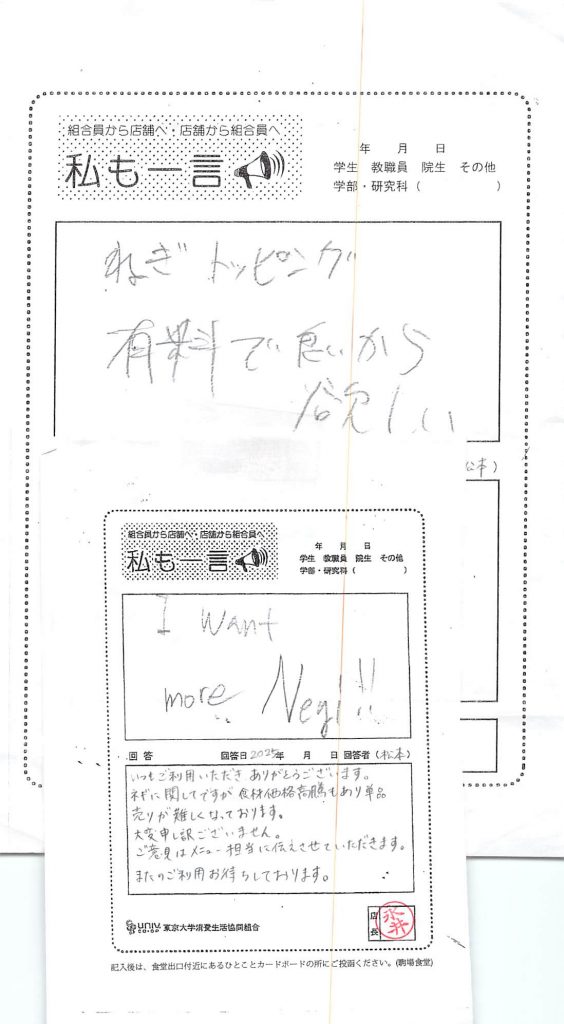 組合員から店舗へ・店舗から組合員へ
私も一言
年 月 日
学生 教職員 院生 その他
学部・研究科( )
ねぎトッピング
有料で良いから
欲しい
松本)
組合員から店舗へ・店舗から組合員へ
私も一言
年 月 日
学生 教職員 院生 その他
学部・研究科( )
I want
more Negi!!
回答 回答日2025年 月 日 回答者(松本)
いつもご利用いただきありがとうございます。
ネギに関してですが食材価格高騰もあり単品
売りが難しくなっております。
大変申し訳ございません。
ご意見はメニュー担当に伝えさせていただきます。
またのご利用お待ちしております。
UNIV. CO-OP 東京大学消費生活協同組合
店長 永井
記入後は、食堂出口付近にあるひとことカードボードの所にご投函ください。(駒場食堂)